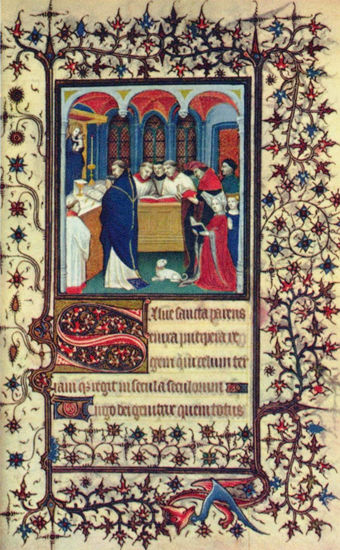 Salue sancta parens
enixa puerpera re
gem qui celum ter
ram q3 regit in secula seculorum
Uirgo dei genitrix quem totus